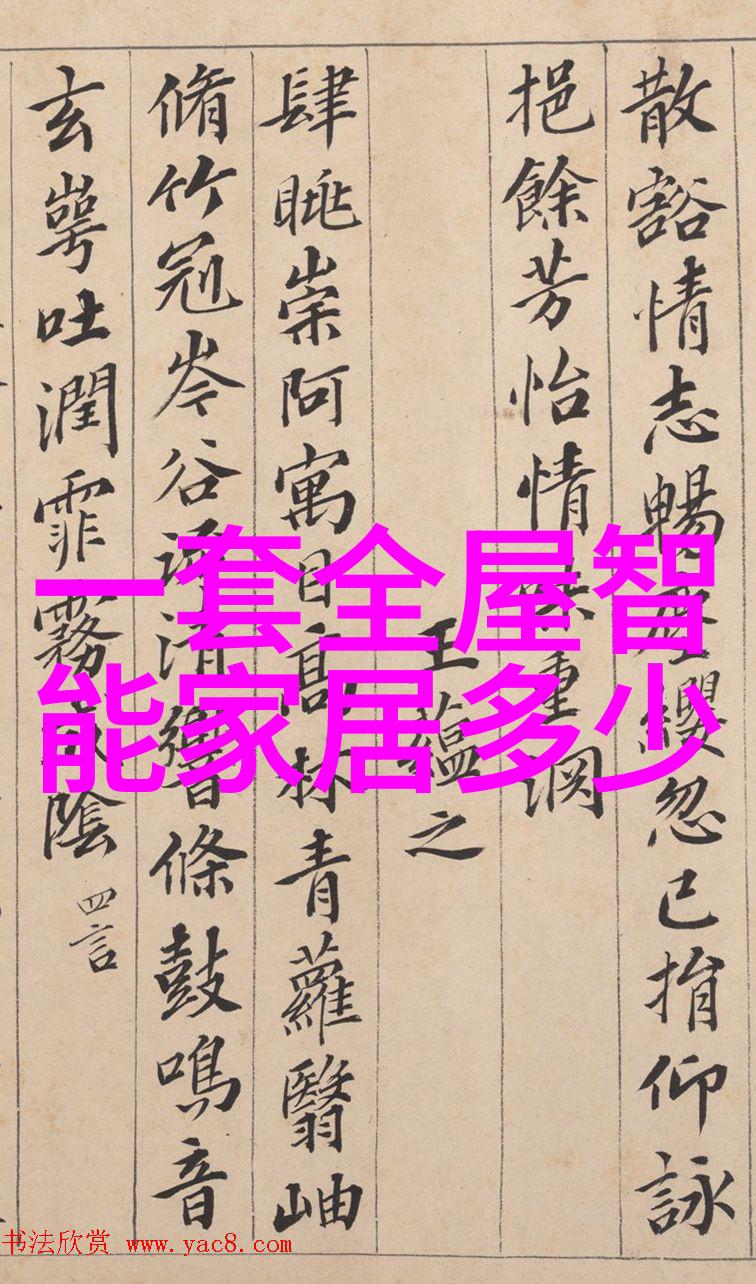 散豁情志暢塵纓忽已捐仰詠
挹餘芳怡情味重淵
王蘊之
肆眺崇阿寓目高林青蘿翳岫
脩竹冠岑谷流清響條鼓鳴音
玄崿吐潤霏霧成陰
四言
一套全屋智
能家居多少
书法欣赏 www.yac8.com